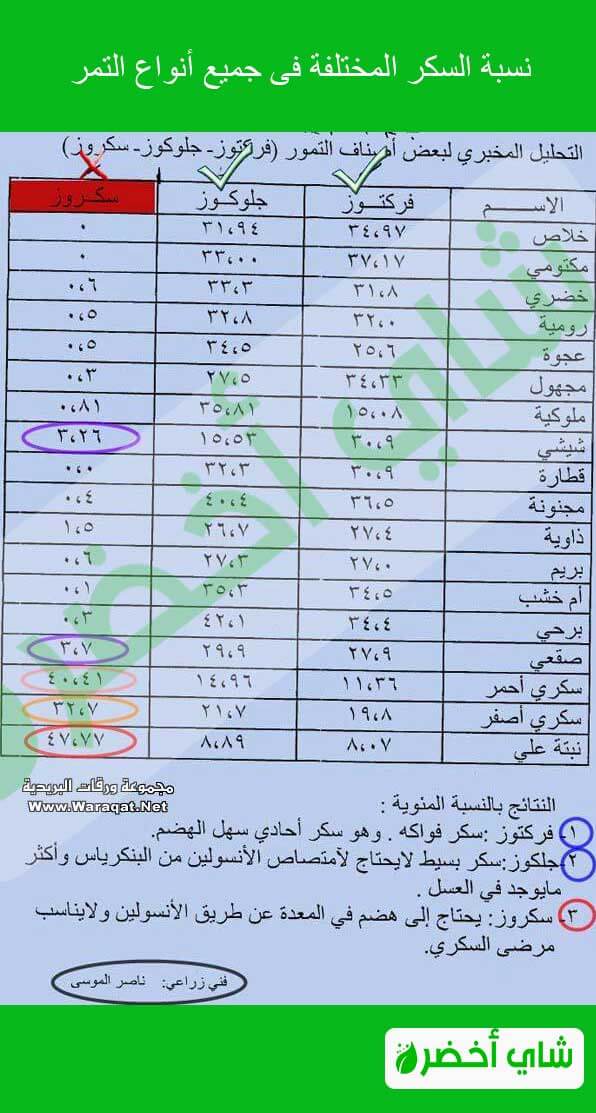 نسبة السكر المختلفة فى جميع أنواع التمر
التحليل المخبري لبعض أصناف التمور (فركتوز- جلوكوز- سكروز)
الاســـم فركتـــوز جلوكــوز سكــروز
خلاص ٣٤،٩٧ ٣١،٩٤ ٠
مكتومي ٣٧،١٧ ٣٣،٠٠ ٠
خضري ٣١،٨ ٣٣،٣ ٠،٦
رومية ٣٢،٠ ٣٢،٨ ٠،٥
عجوة ٢٥،٦ ٣٤،٥ ٠،٥
مجهول ٣٤،٣٣ ٢٧،٥ ٠،٣
ملوكية ١٥،٠٨ ٣٥،٨١ ٠،٨١
شيشي ٣٠،٩ ١٥،٥٣ ٣،٢٦
قطارة ٣٠،٩ ٣٢،٣ ٠،٠
مجنونة ٣٦،٥ ٤٠،٤ ٠،٤
ذاوية ٢٧،٤ ٢٦،٧ ١،٥
بريم ٢٧،٠ ٢٧،٣ ٠،٦
أم خشب ٣٤،٥ ٣٥،٣ ٠،١
برحي ٣٤،٤ ٤٢،١ ٠،٣
صقعي ٢٧،٩ ٢٩،٩ ٣،٧
سكري أحمر ١١،٣٦ ١٤،٩٦ ٤٠،٤١
سكري أصفر ١٩،٨ ٢١،٧ ٣٢،٧
نبتة علي ٨،٠٧ ٨،٨٩ ٤٧،٧٧
شاي أخضر
مجموعة ورقات البريدية
Www.Waraqat.Net
النتائج بالنسبة المئوية :
١- فركتوز :سكر فواكه . وهو سكر أحادي سهل الهضم.
٢-جلكوز:سكر بسيط لايحتاج لآمتصاص الأنسولين من البنكرياس وأكثر
مايوجد في العسل .
٣- سكروز: يحتاج إلى هضم في المعدة عن طريق الأنسولين ولايناسب
مرضى السكري.
فني زراعي: ناصر الموسى
شاي أخضر